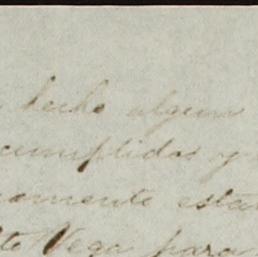 hecho algun
cumplidas y
amente esta
to Vega para